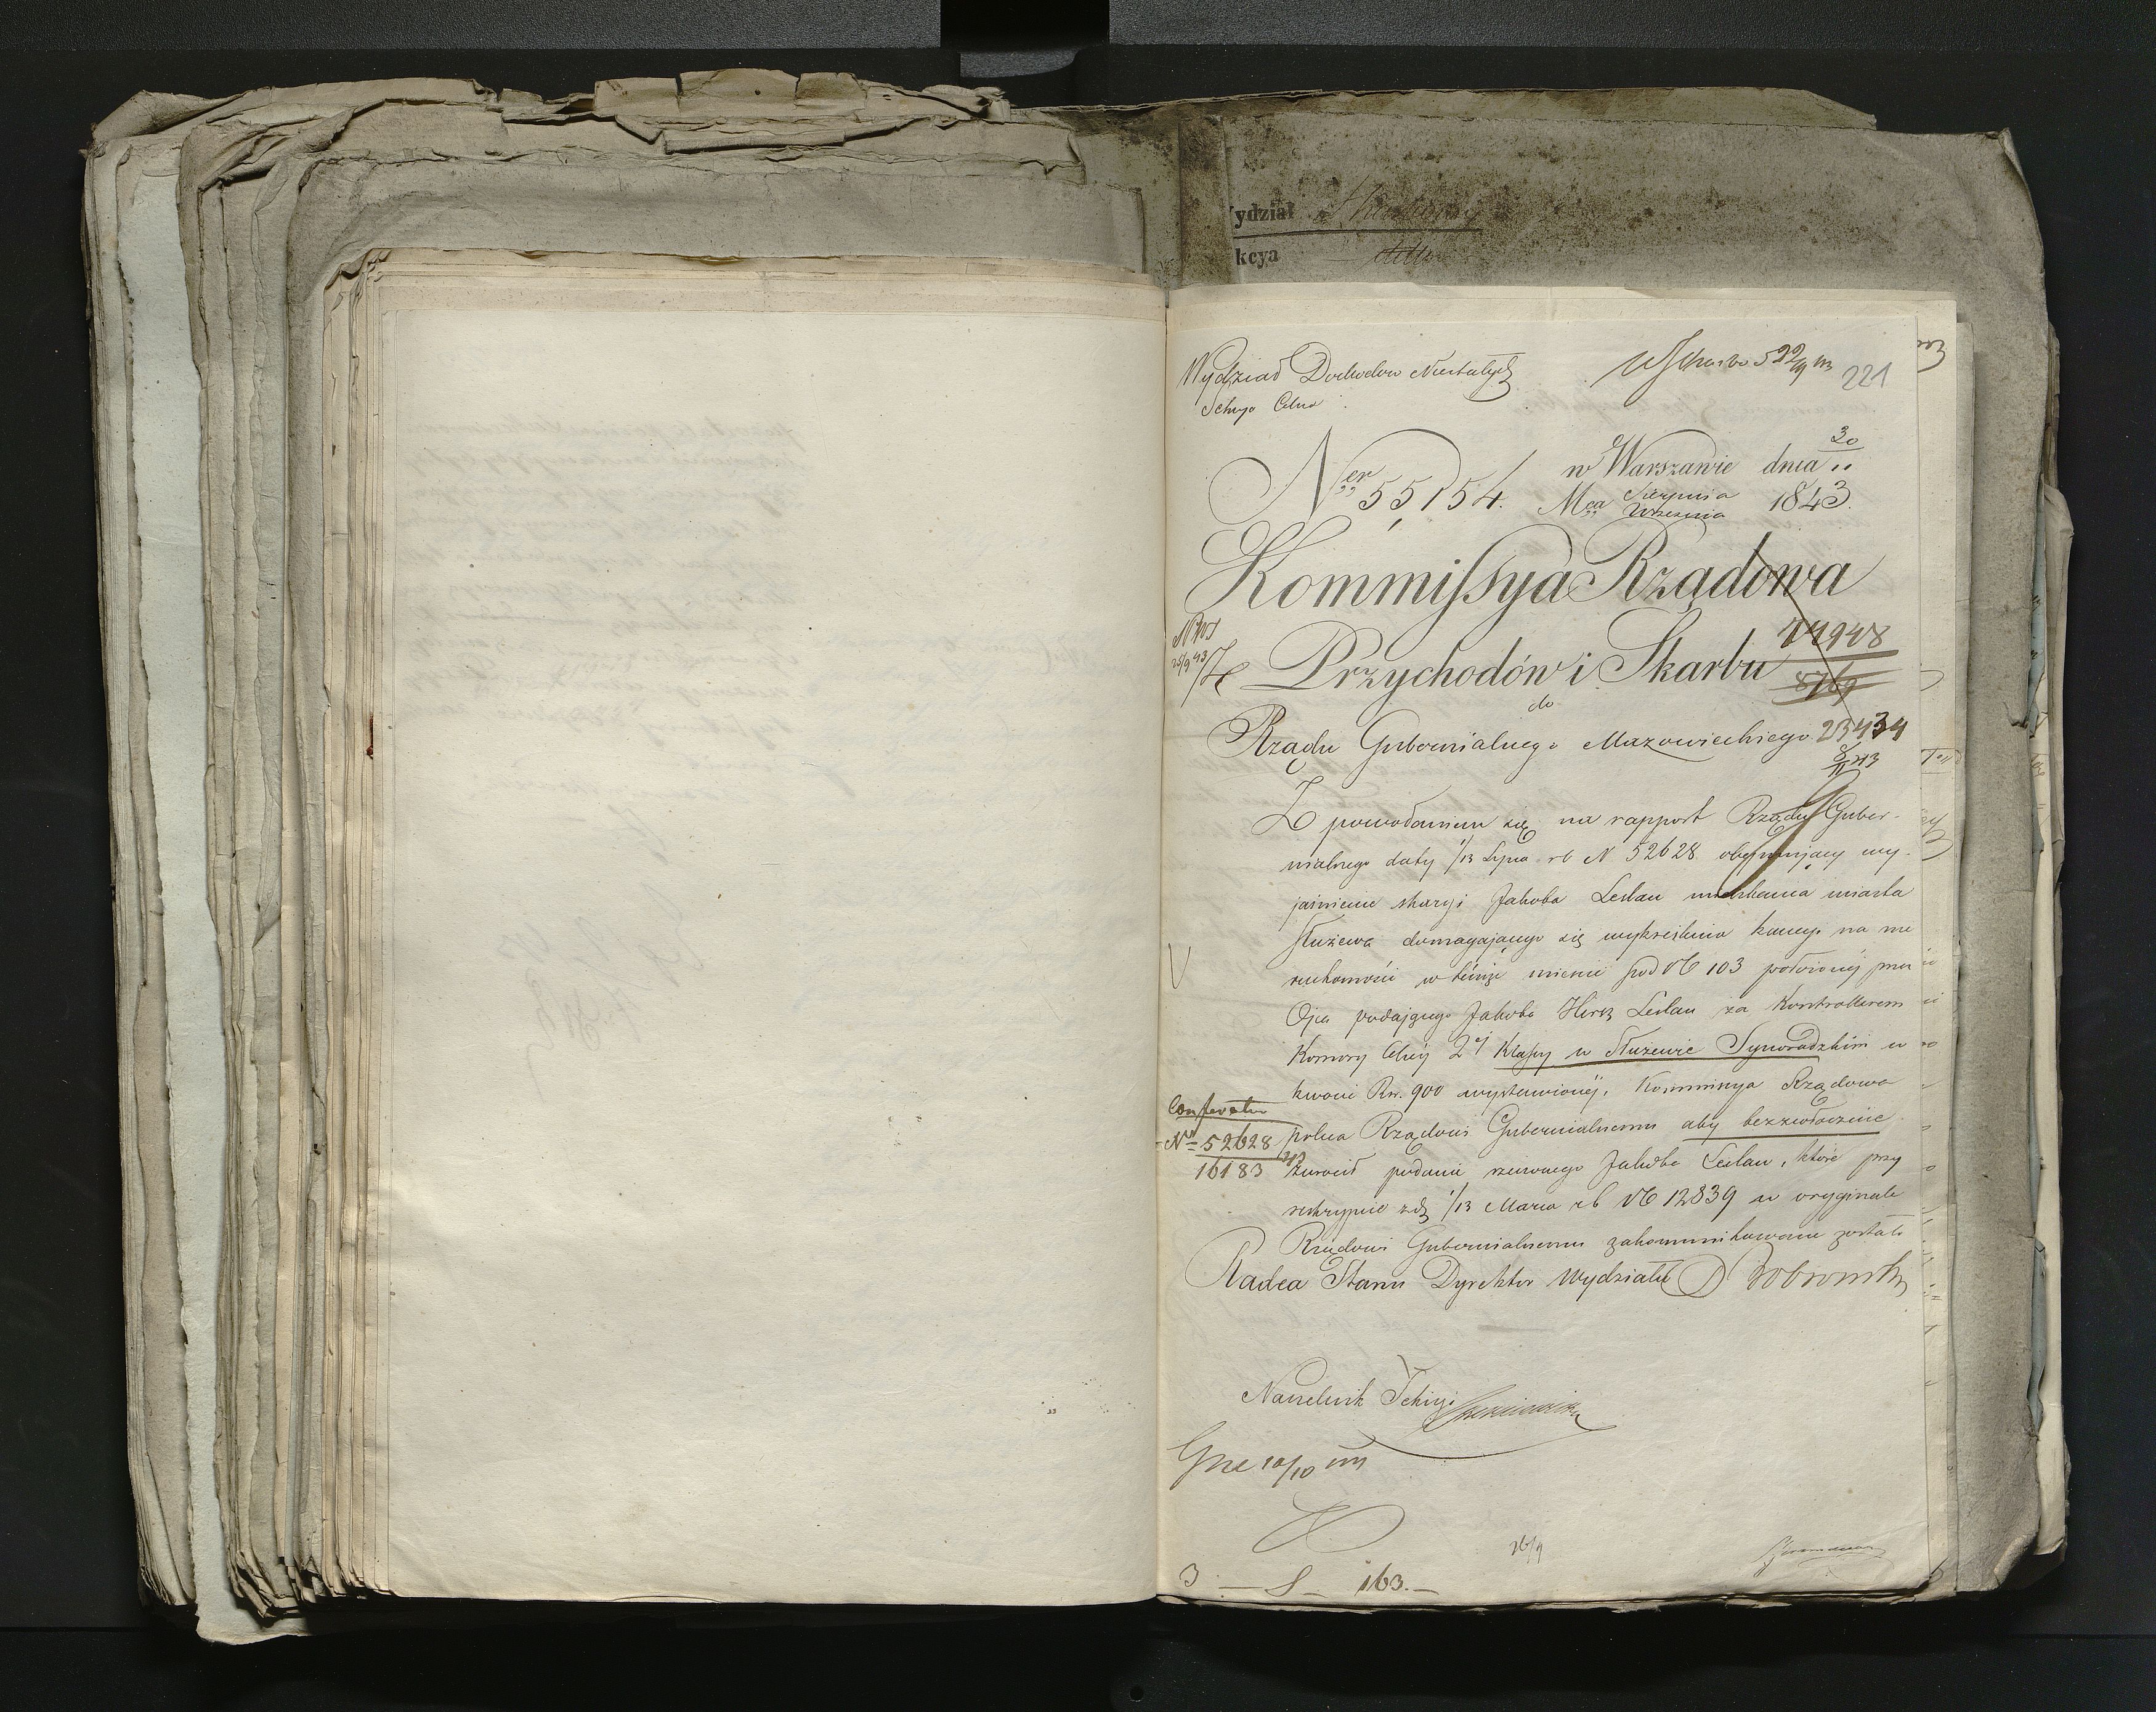 Wydział
kcya
Wydział Dochodów Niestałych
Sekcya Celna
221
Ner 55154. w Warszawie dnia 30
Mca Sierpnia Września 1843.
Kommissya Rządowa
Przychodów i Skarbu
14948
do
Rządu Gubernialnego Mazowieckiego 23434
Z powodaniem się na rapport Rządu Guber-
nialnego daty 1/13 Lipca rb N 52628 obejmujący wy-
jaśnienie skargi Jakóba Leslau mieszkańca miasta
Służewa domagającego się wykreślenia kaucyi na nie
ruchomości w témże mieście pod N 103 położonéj przez
Ojca podającego Jakóba Hersz Leslau za Kontrollerem
Komory Celnéj 2éj Klassy w Służewie Synoradzkim w
kwocie Rsr. 900 wystawionéj, Kommissya Rządowa
poleca Rządowi Gubernialnemu aby bezzwłocznie
zwrócił podanie rzeczonego Jakóba Leslau, które przy
reskrypcie z dn 1/13 Marca rb N 12839 w oryginale
Rządowi Gubernialnemu zakommunikowane zostało
Radca Stanu Dyrektor Wydziału
Conferatur
Nr 52628
16183
Naczelnik Sekcyi
26/9
163.